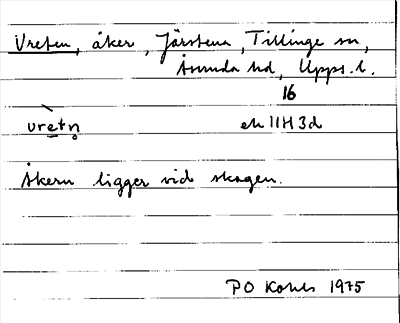 Vreten, åker, Järstena, Tillinge sn,
Åsunda hd, Upps. l.
16
vretn̥ ek 11H 3d
Åkern ligger vid skogen.
P O Kohls 1975